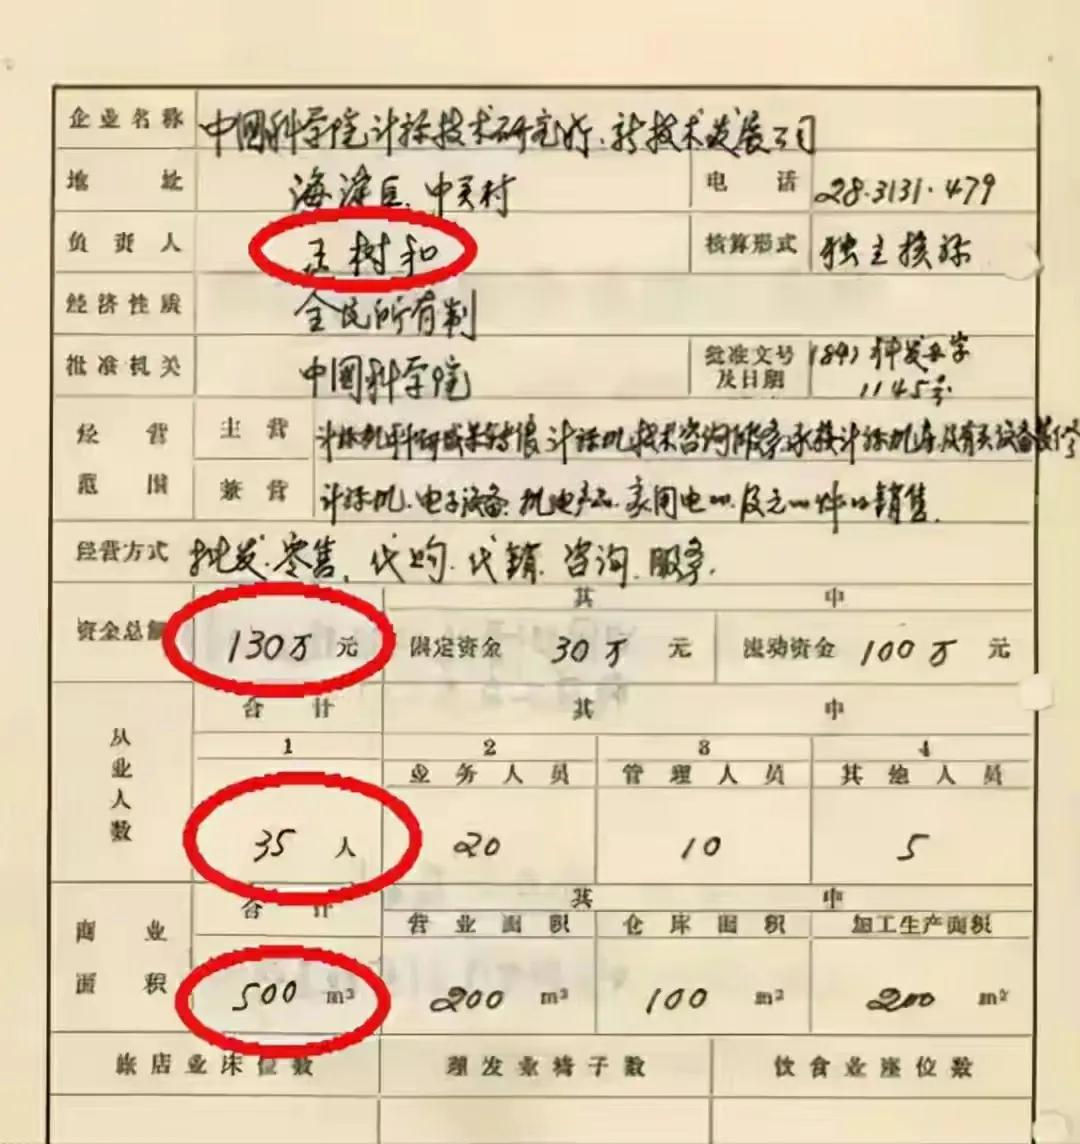 企业名称 中国科学院计标技术研究所.新技术发展公司
地址 海淀区.中关村 电话 28.3131.479
负责人 王树和 核算形式 独立核标
经济性质 全民所有制
批准机关 中国科学院 批准文号及日期 科发计字 1145号
经营范围 主营 计标机科研成果转让 计标机技术咨询服务.承接计标机
兼营 计标机.电子设备.机电产品.家用电 销售.
经营方式 批发.零售.代购.代销.咨询.服务.
其中
资金总额 130万元 固定资金 30万元 流动资金 100万元
从业人数 合计 其中
1 2 3 4
业务人员 管理人员 其他人员
35人 20 10 5
商业面积 合计 其中
营业面积 仓库面积 加工生产面积
500 m² 200 m² 100 m² 200 m²
旅店业床位数 理发业椅子数 饮食业座位数